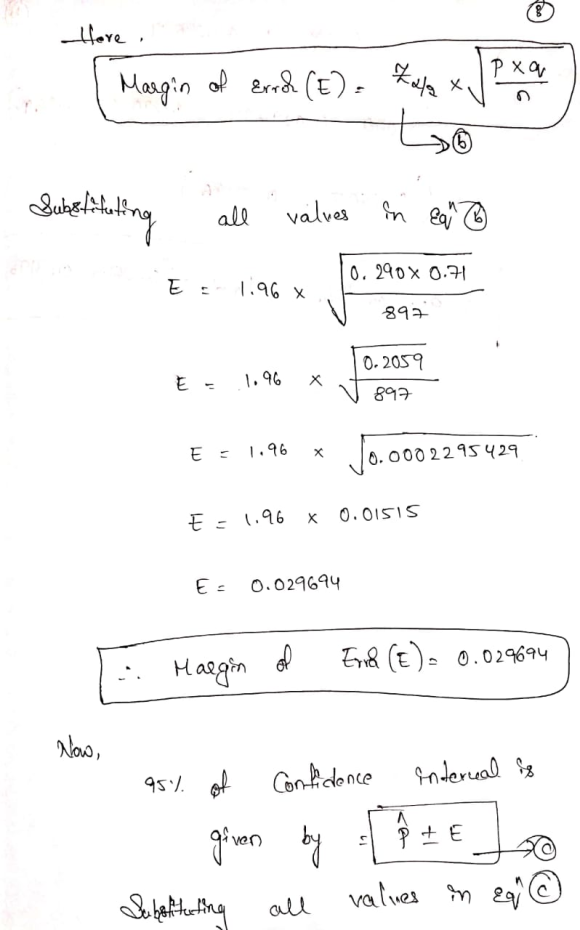 8
Here,
Margin of Error (E) = Zα/2 × √(p × q / n)
→ ⓑ
Substituting all values in Eqⁿ ⓑ
E = 1.96 × √(0.290 × 0.71 / 897)
E = 1.96 × √(0.2059 / 897)
E = 1.96 × √0.0002295429
E = 1.96 × 0.01515
E = 0.029694
∴ Margin of Error (E) = 0.029694
Now,
95% of Confidence interval is
given by = p̂ ± E → ⓒ
Substituting all values in Eqⁿ ⓒ